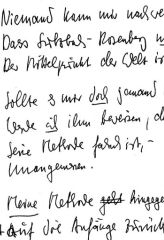 Niemand kann mir nachwe
Dass Sibbels-Rosenberg n
Der Mittelpunkt der Welt is
Sollte es mir doch jemand
Werde ich ihm beweisen, da
Seine Methode falsch ist, -
Unangemessen.
Meine Methode geht hingege
Auf die Anfänge zurück